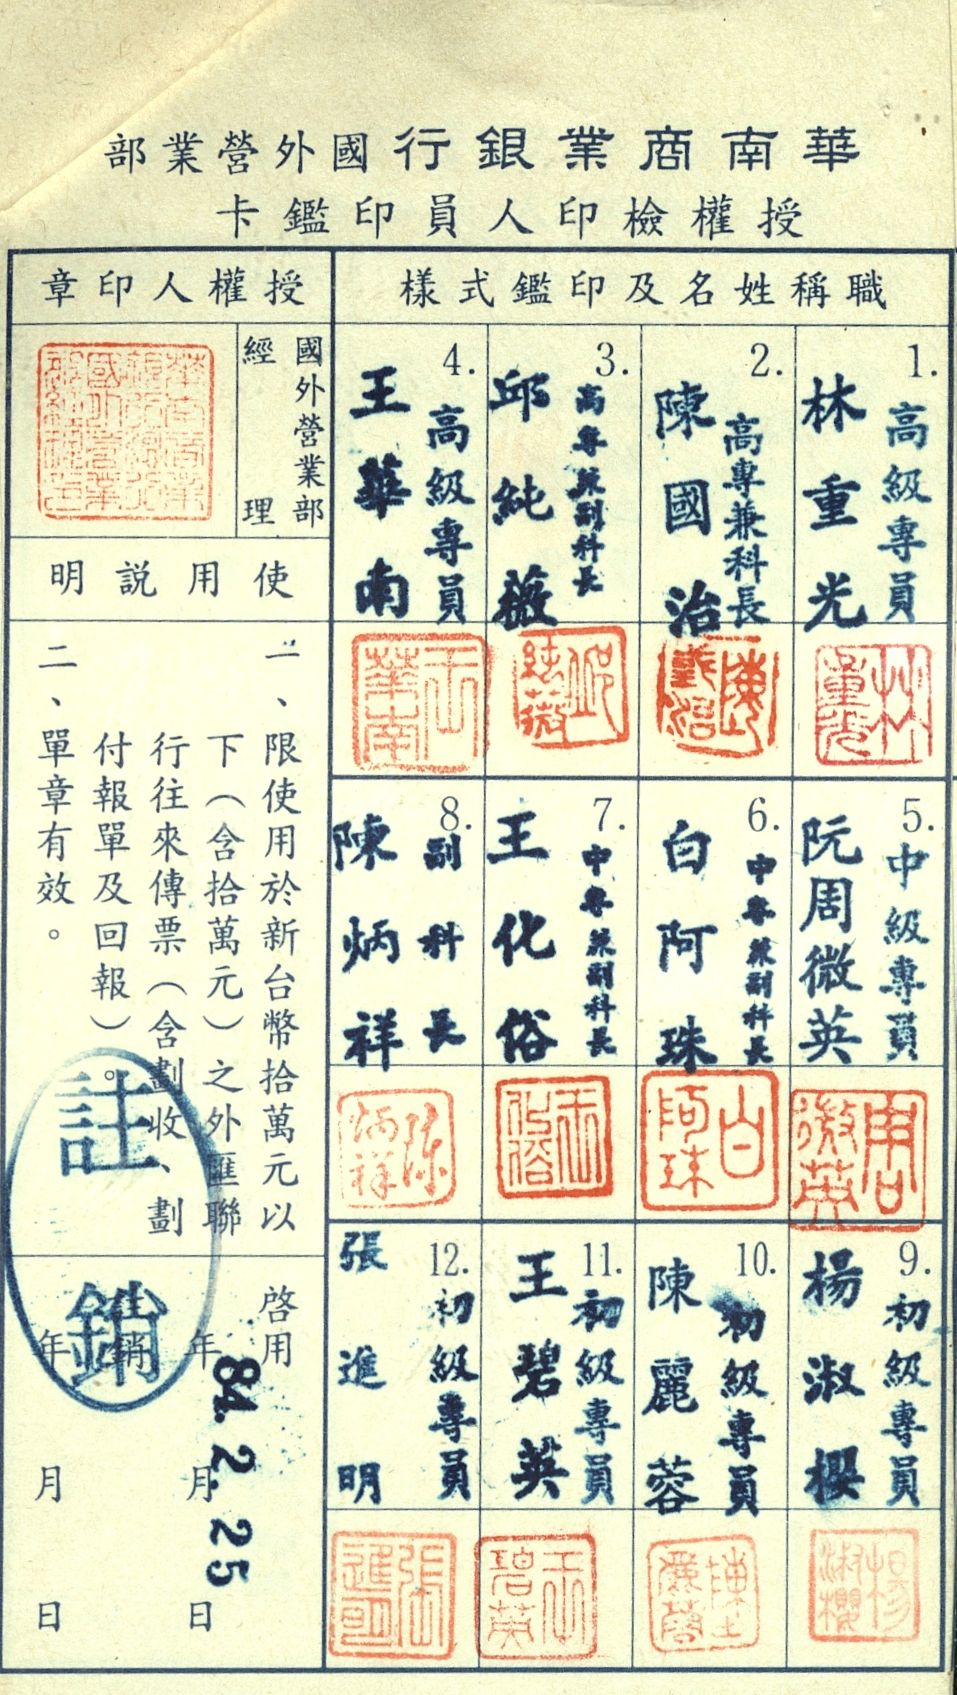 華南商業銀行國外營業部
授權檢印人員印鑑卡
職稱姓名及印鑑式樣
1.
高級專員
林重光
林重光
2.
高專兼科長
陳國治
陳國治
3.
高專兼副科長
邱純薇
邱純薇
4.
高級專員
王華南
王華南
5.
中級專員
阮周微英
周微英
6.
中專兼副科長
白阿珠
白阿珠
7.
中專兼副科長
王化俗
王化俗
8.
副科長
陳炳祥
陳炳祥
9.
初級專員
楊淑櫻
楊淑櫻
10.
初級專員
陳麗蓉
11.
初級專員
王碧英
王碧英
12.
初級專員
張進明
張進明
授權人印章
國外營業部
經理
使用說明
一、限使用於新台幣拾萬元以
下（含拾萬元）之外匯聯
行往來傳票（含劃收、劃
付報單及回報）。
二、單章有效。
啓用
年 月 日
84.2.25
註銷
年 月 日
註銷